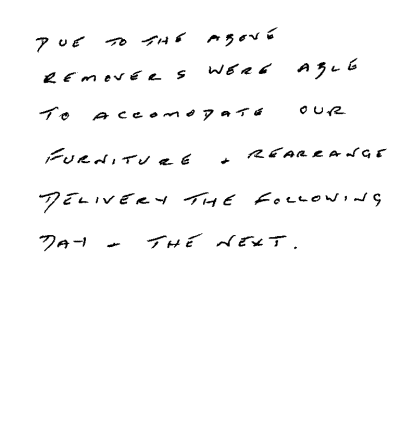 DUE TO THE ABOVE
REMOVERS WERE ABLE
TO ACCOMODATE OUR
FURNITURE + REARRANGE
DELIVERY THE FOLLOWING
DAY + THE NEXT.